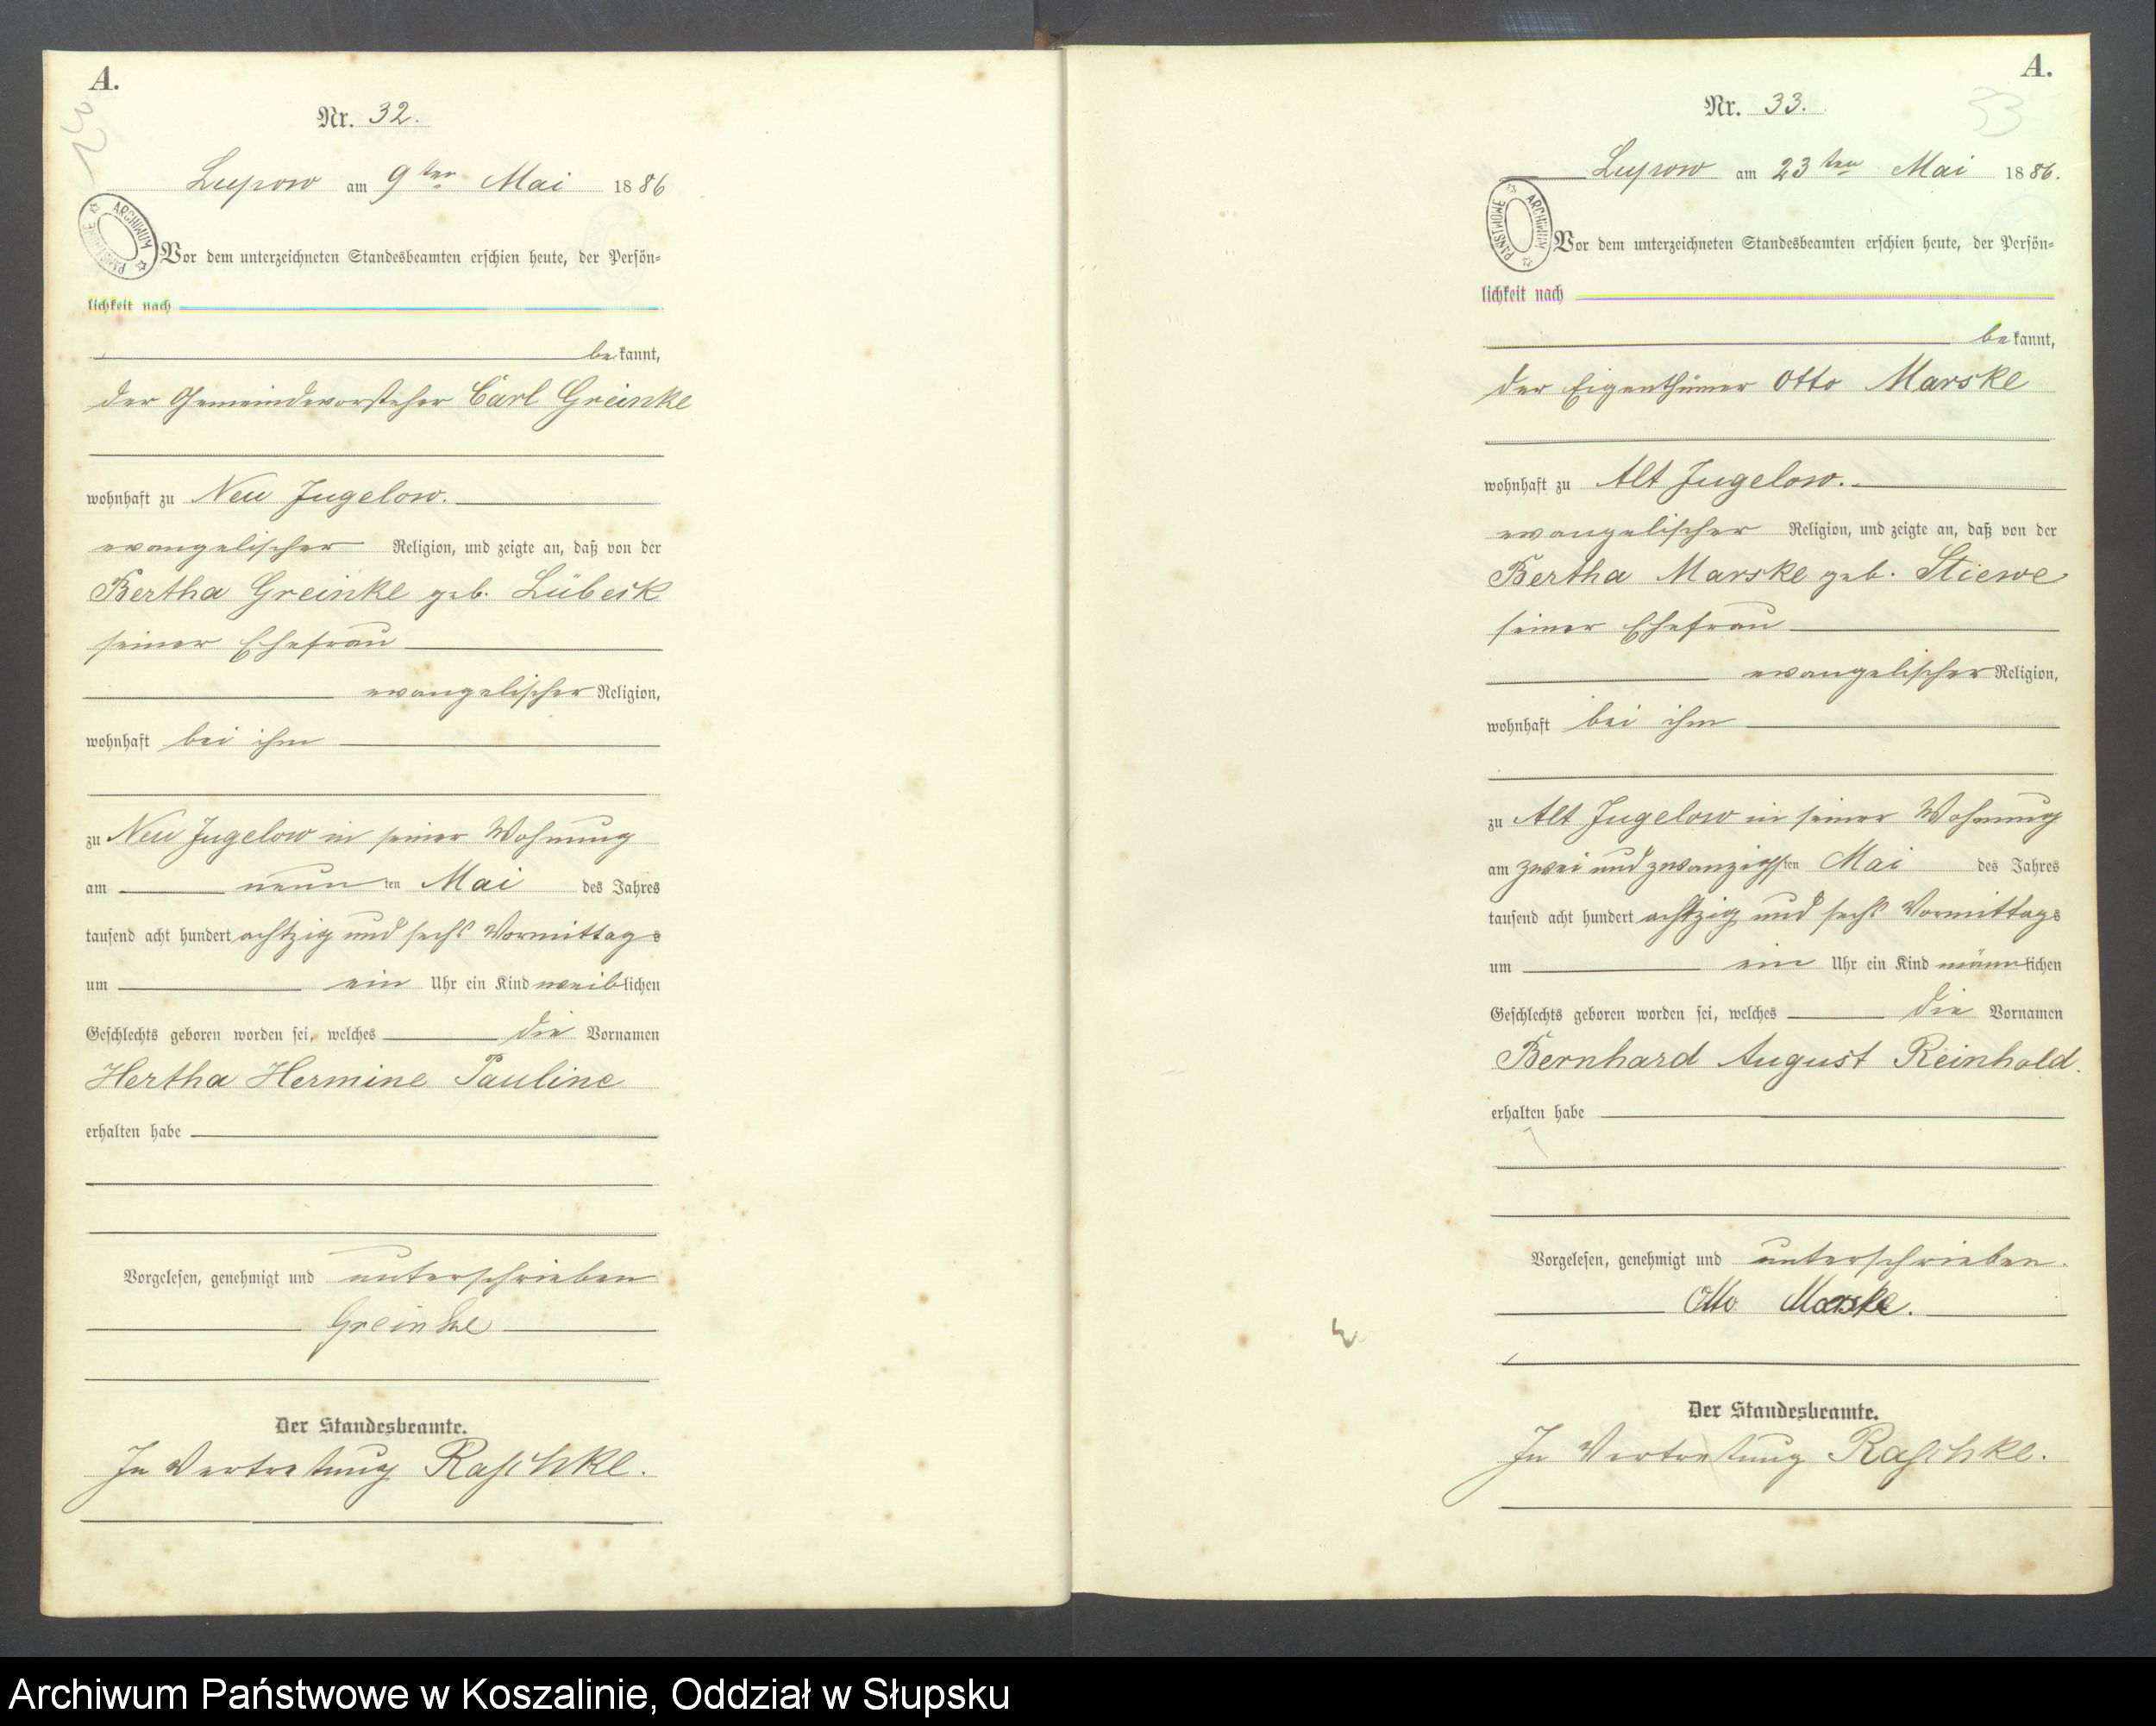 A.
Nr. 32.
Lupow am 9ten Mai 1886
ARCHIWUM PAŃSTWOWE
Vor dem unterzeichneten Standesbeamten erschien heute, der Persön-
lichkeit nach
bekannt,
der Gemeindevorsteher Carl Greinke
wohnhaft zu Neu Jugelow.
evangelischer Religion, und zeigte an, daß von der
Bertha Greinke geb. Lübeck
seiner Ehefrau
evangelischer Religion,
wohnhaft bei ihm
zu Neu Jugelow in seiner Wohnung
am neunten Mai des Jahres
tausend acht hundert achtzig und sechs Vormittags
um ein Uhr ein Kind weiblichen
Geschlechts geboren worden sei, welches die Vornamen
Hertha Hermine Pauline
erhalten habe
Vorgelesen, genehmigt und unterschrieben
Greinke
Der Standesbeamte.
In Vertretung Raschke.
A.
Nr. 33.
33
Lupow am 23ten Mai 1886.
ARCHIWUM PAŃSTWOWE
Vor dem unterzeichneten Standesbeamten erschien heute, der Persön-
lichkeit nach
bekannt,
der Eigenthümer Otto Marske
wohnhaft zu Alt Jugelow.
evangelischer Religion, und zeigte an, daß von der
Bertha Marske geb. Stiewe
seiner Ehefrau
evangelischer Religion,
wohnhaft bei ihm
zu Alt Jugelow in seiner Wohnung
am zwei und zwanzigsten Mai des Jahres
tausend acht hundert achtzig und sechs Vormittags
um ein Uhr ein Kind männlichen
Geschlechts geboren worden sei, welches die Vornamen
Bernhard August Reinhold.
erhalten habe
Vorgelesen, genehmigt und unterschrieben.
Otto Marske.
Der Standesbeamte.
In Vertretung Raschke.
Archiwum Państwowe w Koszalinie, Oddział w Słupsku